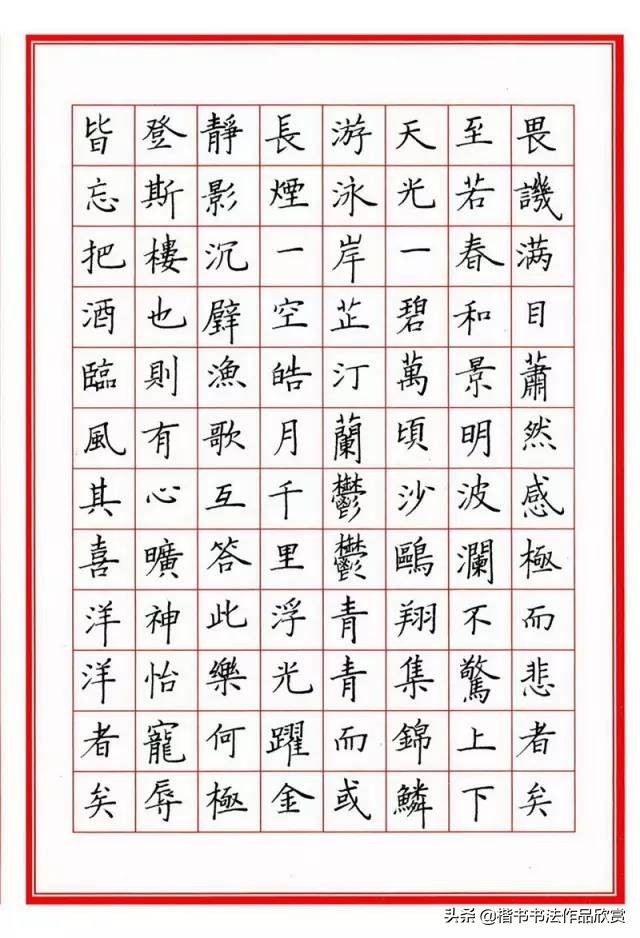 畏譏满目蕭然感極而悲者矣
至若春和景明波瀾不驚上下
天光一碧萬頃沙鷗翔集錦鱗
游泳岸芷汀蘭鬱鬱青青而或
長煙一空皓月千里浮光躍金
靜影沉璧漁歌互答此樂何極
登斯樓也則有心曠神怡寵辱
皆忘把酒臨風其喜洋洋者矣
头条@楷书书法作品欣赏